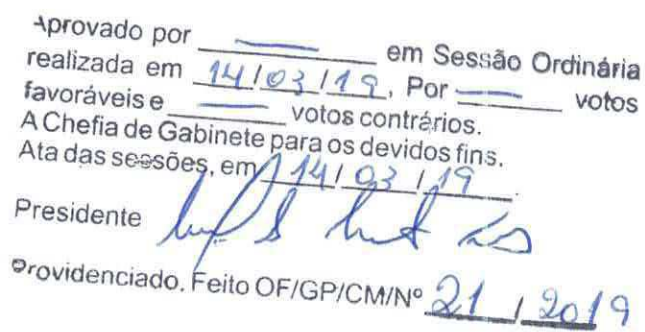 Aprovado por ——— em Sessão Ordinária
realizada em 14/03/19, Por ——— votos
favoráveis e ——— votos contrários.
A Chefia de Gabinete para os devidos fins.
Ata das sessões, em 14/03/19.
Presidente
Providenciado. Feito OF/GP/CM/Nº 21/2019